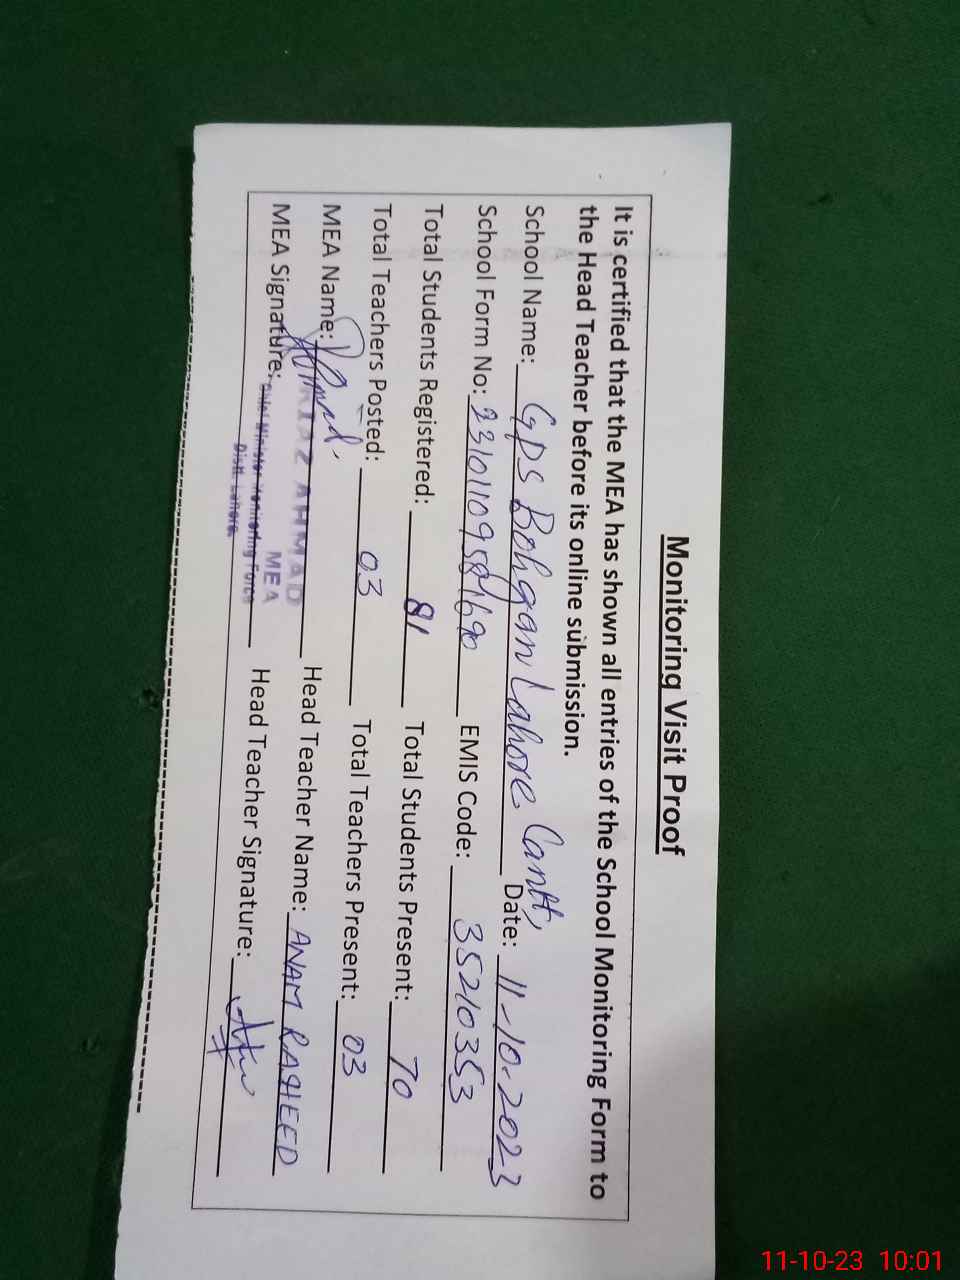 Monitoring Visit Proof
It is certified that the MEA has shown all entries of the School Monitoring Form to
the Head Teacher before its online submission.
School Name: GPS Bohgan Lahore Cantt, Date: 11-10-2023
School Form No: EMIS Code: 35210353
Total Students Registered: 81 Total Students Present: 70
Total Teachers Posted: 03 Total Teachers Present: 03
MEA Name: AHMAD Head Teacher Name: ANAM RASHEED
MEA Signature: MEA Head Teacher Signature:
Chief Minister Monitoring Force
Distt. Lahore.
11-10-23 10:01